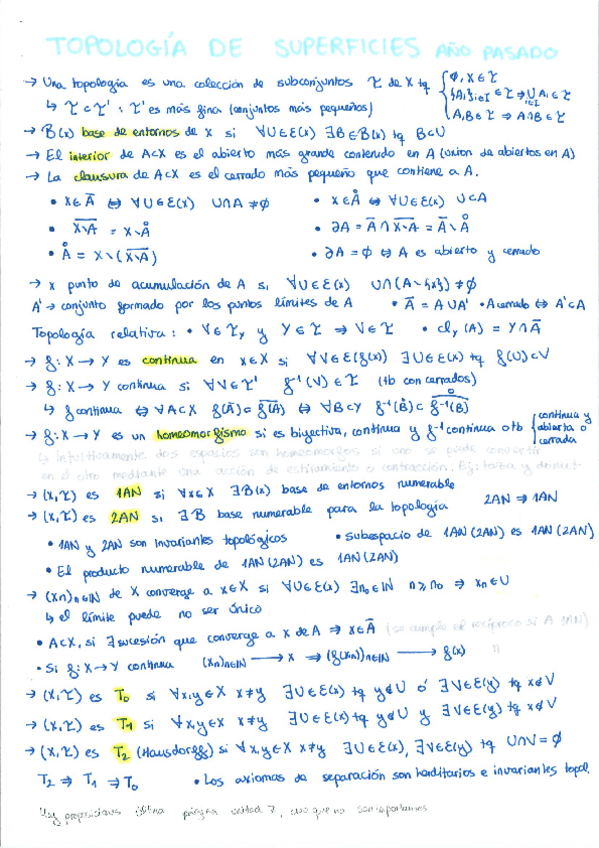 TOPOLOGÍA DE SUPERFICIES AÑO PASADO
→ Una topología es una colección de subconjuntos τ de X tq { ∅, X ∈ τ
{Ai}i∈I ∈ τ ⇒ ∪i∈I Ai ∈ τ
↳ τ ⊂ τ' : τ' es más fina (conjuntos más pequeños) A, B ∈ τ ⇒ A∩B ∈ τ
→ B(x) base de entornos de x si ∀U∈E(x) ∃B∈B(x) tq B⊂U
→ El interior de A⊂X es el abierto más grande contenido en A (unión de abiertos en A)
→ La clausura de A⊂X es el cerrado más pequeño que contiene a A.
• x∈Ā ⇔ ∀U∈E(x) U∩A ≠ ∅ • x∈Å ⇔ ∀U∈E(x) U⊂A
• \overline{X\A} = X\Å • ∂A = Ā ∩ \overline{X\A} = Ā\Å
• Å = X\(\overline{X\A}) • ∂A = ∅ ⇔ A es abierto y cerrado
→ x punto de acumulación de A si ∀U∈E(x) U∩(A-{x}) ≠ ∅
A' → conjunto formado por los puntos límites de A • Ā = A∪A' • A cerrado ⇔ A'⊂A
Topología relativa: • V∈τ_Y y Y∈τ ⇒ V∈τ • cl_Y(A) = Y∩Ā
→ f: X→Y es continua en x∈X si ∀V∈E(f(x)) ∃U∈E(x) tq f(U)⊂V
→ f: X→Y continua si ∀V∈τ' f⁻¹(V)∈τ (tb con cerrados)
↳ f continua ⇔ ∀A⊂X f(Ā)⊂\overline{f(A)} ⇔ ∀B⊂Y f⁻¹(B̊)⊂ \overset{o}{\overline{f⁻¹(B)}}
→ f: X→Y es un homeomorfismo si es biyectiva, continua y f⁻¹ continua o tb { continua y abierta o cerrada
↳ Intuitivamente dos espacios son homeomorfos si uno se puede convertir
en el otro mediante una acción de estiramiento o contracción. Ej: taza y donut.
→ (X,τ) es 1AN si ∀x∈X ∃B(x) base de entornos numerable
→ (X,τ) es 2AN si ∃B base numerable para la topología 2AN ⇒ 1AN
• 1AN y 2AN son invariantes topológicos • Subespacio de 1AN (2AN) es 1AN (2AN)
• El producto numerable de 1AN (2AN) es 1AN (2AN)
→ (xn)n∈ℕ de X converge a x∈X si ∀U∈E(x) ∃n₀∈ℕ n≥n₀ ⇒ xn∈U
↳ el límite puede no ser único
• A⊂X, si ∃ sucesión que converge a x de A ⇒ x∈Ā (se cumple el recíproco si A 1AN)
• Si f: X→Y continua (xn)n∈ℕ → x ⇒ (f(xn))n∈ℕ → f(x) "
→ (X,τ) es T₀ si ∀x,y∈X x≠y ∃U∈E(x) tq y∉U ó ∃V∈E(y) tq x∉V
→ (X,τ) es T₁ si ∀x,y∈X x≠y ∃U∈E(x) tq y∉U y ∃V∈E(y) tq x∉V
→ (X,τ) es T₂ (Hausdorff) si ∀x,y∈X x≠y ∃U∈E(x), ∃V∈E(y) tq U∩V = ∅
T₂ ⇒ T₁ ⇒ T₀ • Los axiomas de separación son herditarios e invariantes topol.
Hay proposiciones última página unidad 7, creo que no son importantes